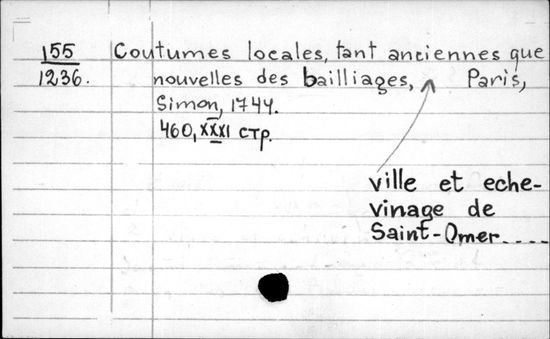 155 Coutumes locales, tant anciennes que
1236. nouvelles des bailliages, Paris,
Simon, 1744.
460, XXXI стр.
ville et eche-
vinage de
Saint-Omer....